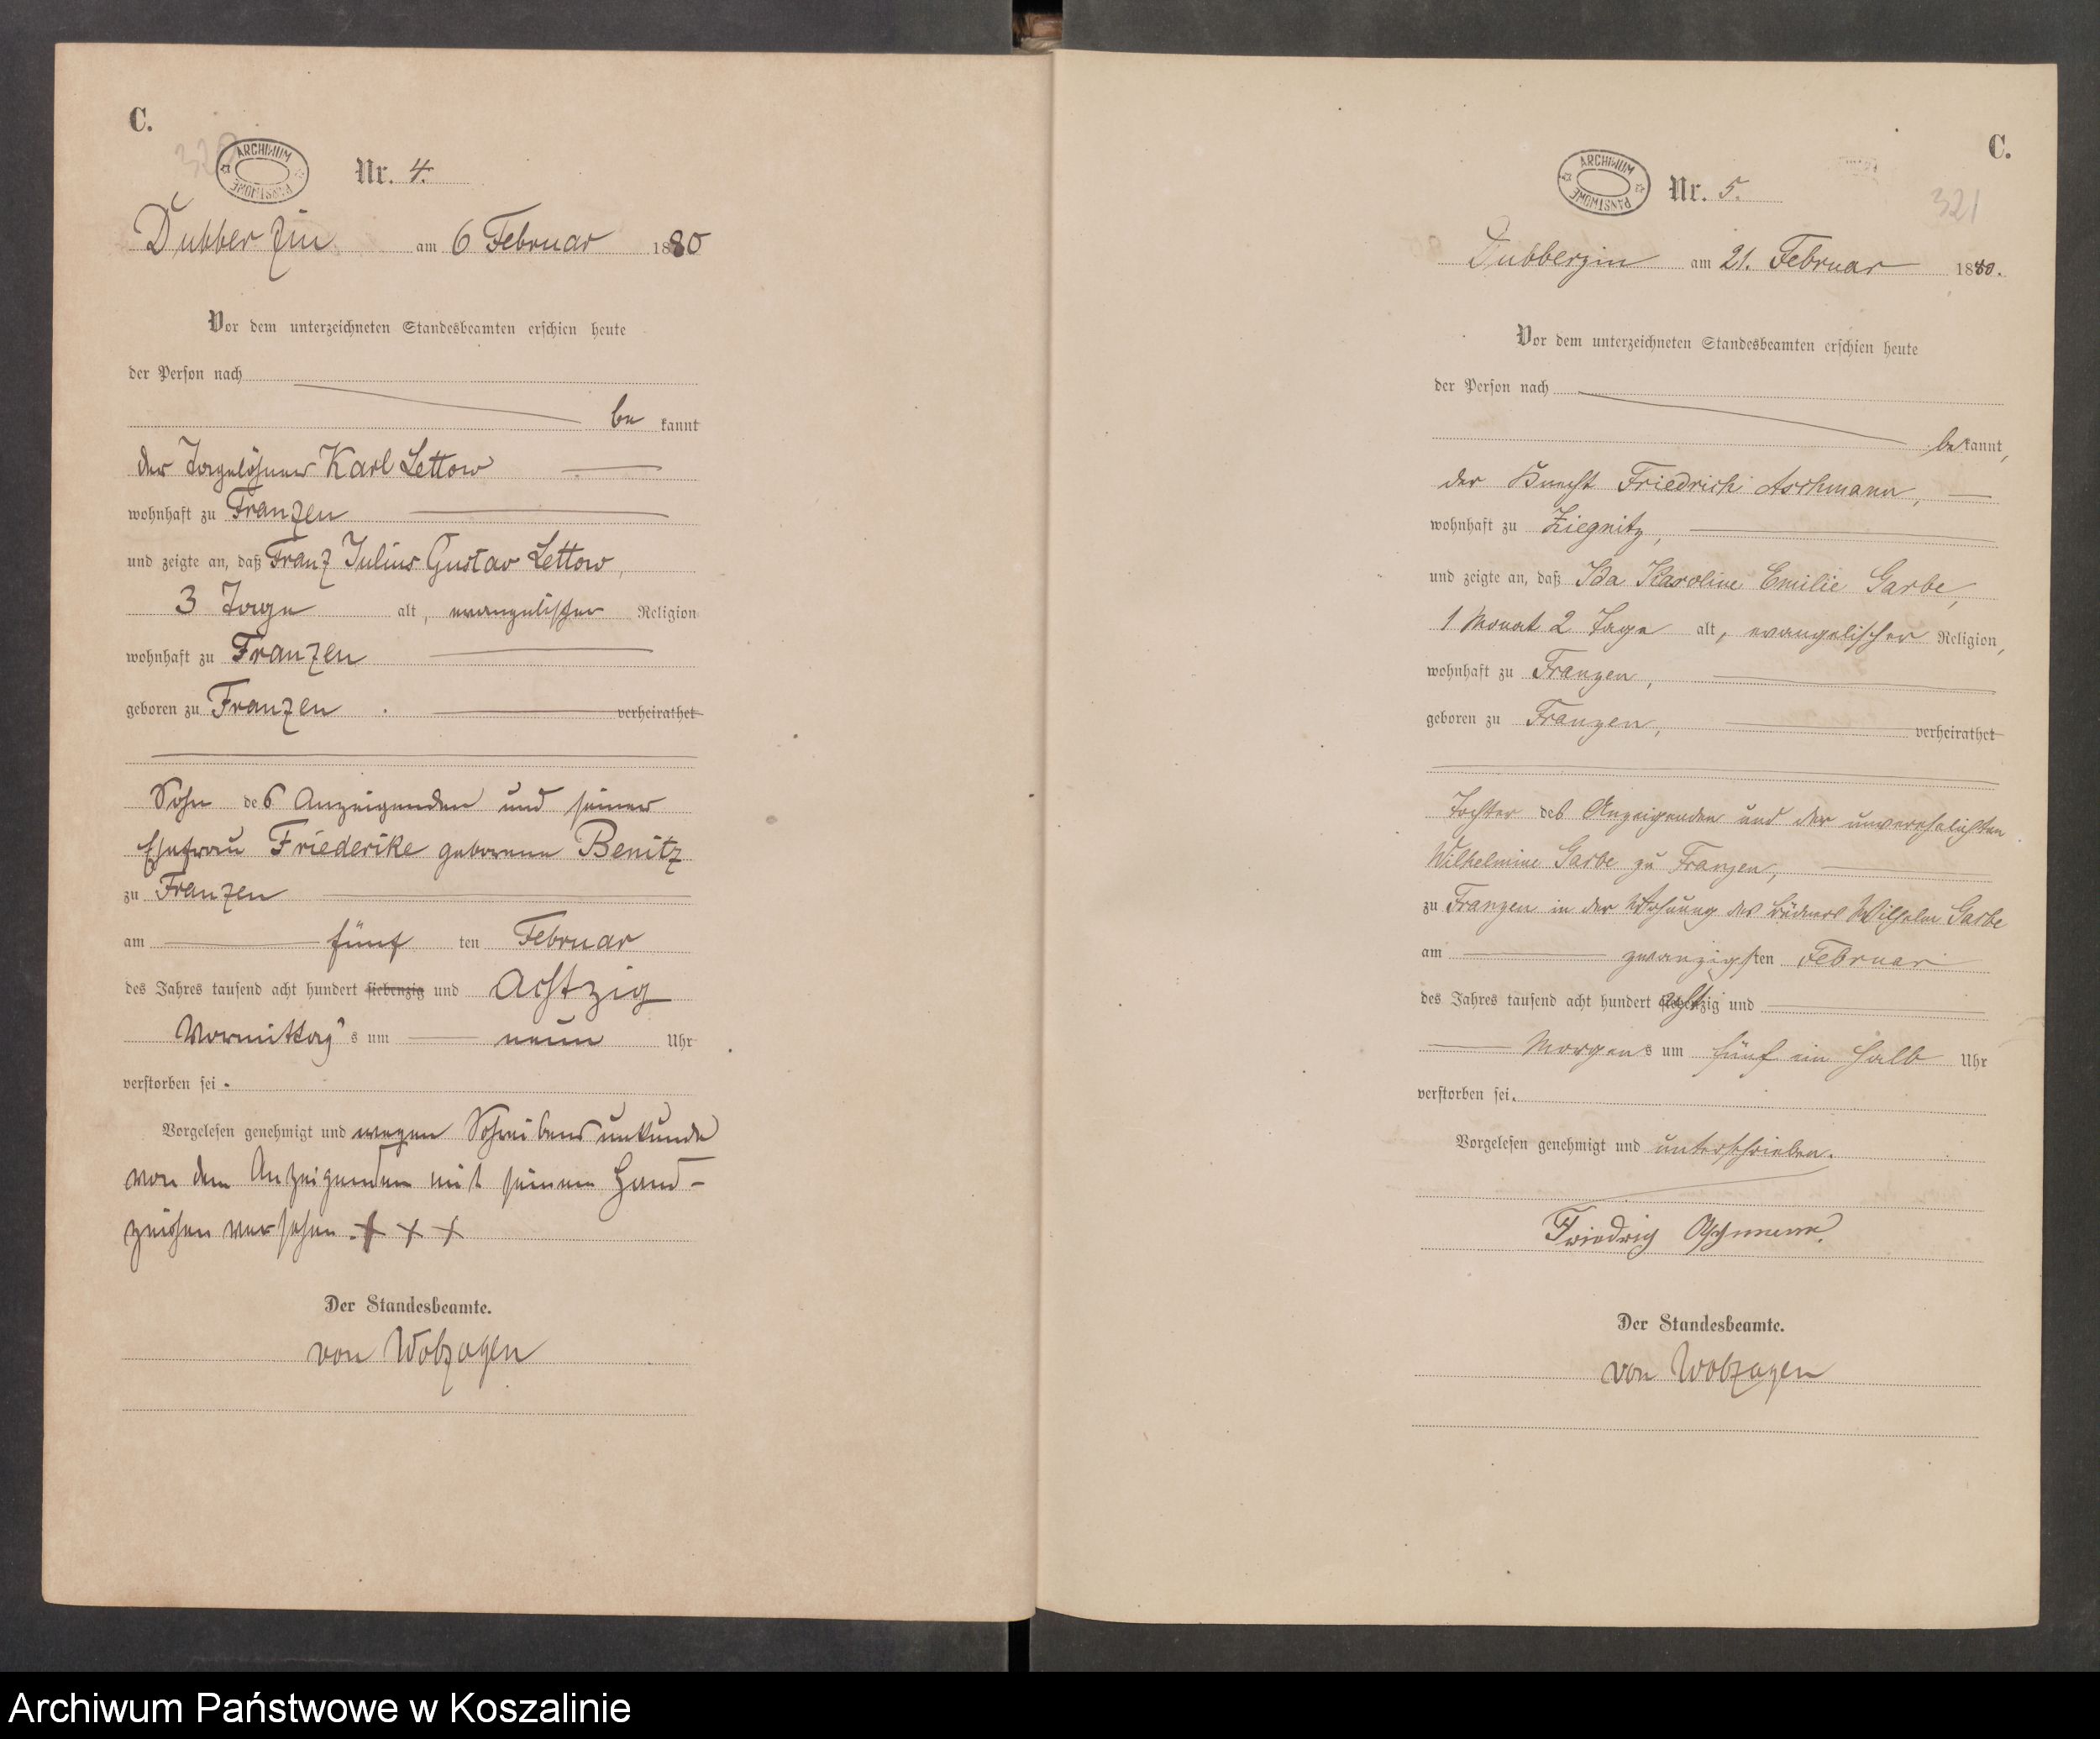 C.
320
ARCHIWUM PAŃSTWOWE
Nr. 4.
Dubberzin am 6 Februar 1880
Vor dem unterzeichneten Standesbeamten erschien heute
der Person nach
be kannt
der Tagelöhner Karl Lettow
wohnhaft zu Franzen
und zeigte an, daß Franz Julius Gustav Lettow,
3 Tage alt, evangelischer Religion
wohnhaft zu Franzen
geboren zu Franzen verheirathet
Sohn des Anzeigenden und seiner
Ehefrau Friederike geborene Benitz
zu Franzen
am fünf ten Februar
des Jahres tausend acht hundert siebenzig und Achtzig
Vormittag s um neun Uhr
verstorben sei.
Vorgelesen genehmigt und wegen Schreibensunkunde
von dem Anzeigenden mit seinem Hand-
zeichen versehen. + + +
Der Standesbeamte.
von Wobzogen
C.
321
ARCHIWUM PAŃSTWOWE
Nr. 5.
Dubberzin am 21. Februar 1880.
Vor dem unterzeichneten Standesbeamten erschien heute
der Person nach
be kannt,
der Knecht Friedrich Aschmann,
wohnhaft zu Ziegnitz,
und zeigte an, daß Ida Karoline Emilie Garbe,
1 Monat 2 Tage alt, evangelischer Religion,
wohnhaft zu Franzen,
geboren zu Franzen, verheirathet
Tochter des Anzeigenden und der unverehelichten
Wilhelmine Garbe zu Franzen,
zu Franzen in der Wohnung des Büdners Wilhelm Garbe
am zwanzigsten Februar
des Jahres tausend acht hundert achtzig und
Morgens um fünf ein halb Uhr
verstorben sei.
Vorgelesen genehmigt und unterschrieben.
Friedrich Aschmann.
Der Standesbeamte.
von Wobzogen
Archiwum Państwowe w Koszalinie